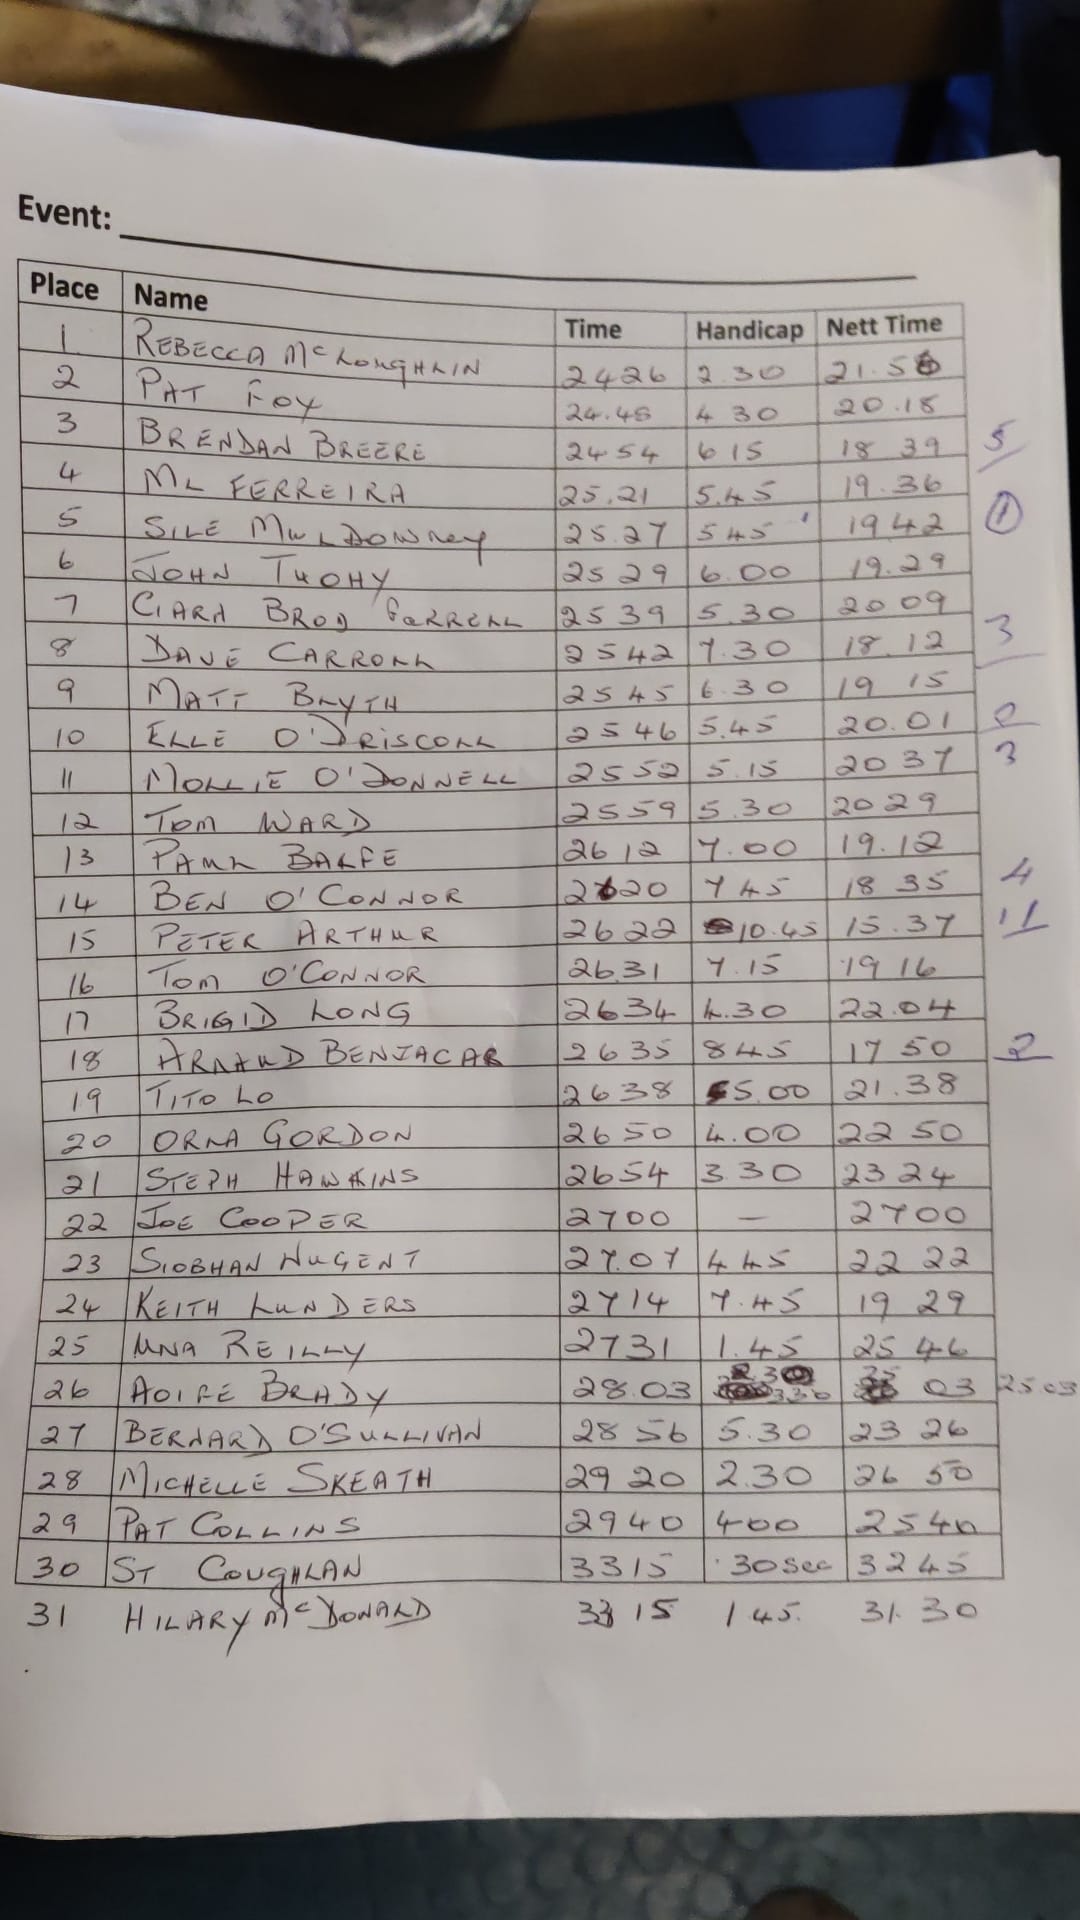 Event:
Place Name Time Handicap Nett Time
1 REBECCA McLOUGHLIN 2426 2.30 21.56
2 PAT FOY 24.48 4 30 20.18
3 BRENDAN BREERE 2454 6 15 18 39 5
4 ML FERREIRA 25.21 5.45 19.36
5 SILE MULDOWNEY 25.27 545 1942 1
6 JOHN TUOHY 25 29 6.00 19.29
7 CIARA BROD FARRELL 2539 5.30 2009
8 DAVE CARROLL 2542 7.30 18.12 3
9 MATT BLYTH 2545 6.30 19 15
10 ELLE O'DRISCOLL 2546 5.45 20.01 2
11 MOLLIE O'DONNELL 2552 5.15 2037 3
12 TOM WARD 2559 5.30 2029
13 PAUL BALFE 26 12 7.00 19.12
14 BEN O'CONNOR 2620 7 45 18 35 4
15 PETER ARTHUR 2622 10.45 15.37 11
16 TOM O'CONNOR 2631 7.15 19 16
17 BRIGID LONG 2634 4.30 22.04
18 ARNAUD BENJACAR 2635 845 17 50 2
19 TITO LO 2638 5.00 21.38
20 ORNA GORDON 2650 4.00 22 50
21 STEPH HAWKINS 2654 3 30 23 24
22 JOE COOPER 2700 — 2700
23 SIOBHAN NUGENT 27.07 4 45 22 22
24 KEITH LUNDERS 2714 7.45 19 29
25 UNA REILLY 2731 1.45 25 46
26 AOIFE BRADY 28.03 03 25.03
27 BERNARD O'SULLIVAN 28 56 5.30 23 26
28 MICHELLE SKEATH 29 20 2.30 26 50
29 PAT COLLINS 2940 400 2540
30 ST COUGHLAN 3315 30sec 3245
31 HILARY McDONALD 33 15 1 45. 31. 30